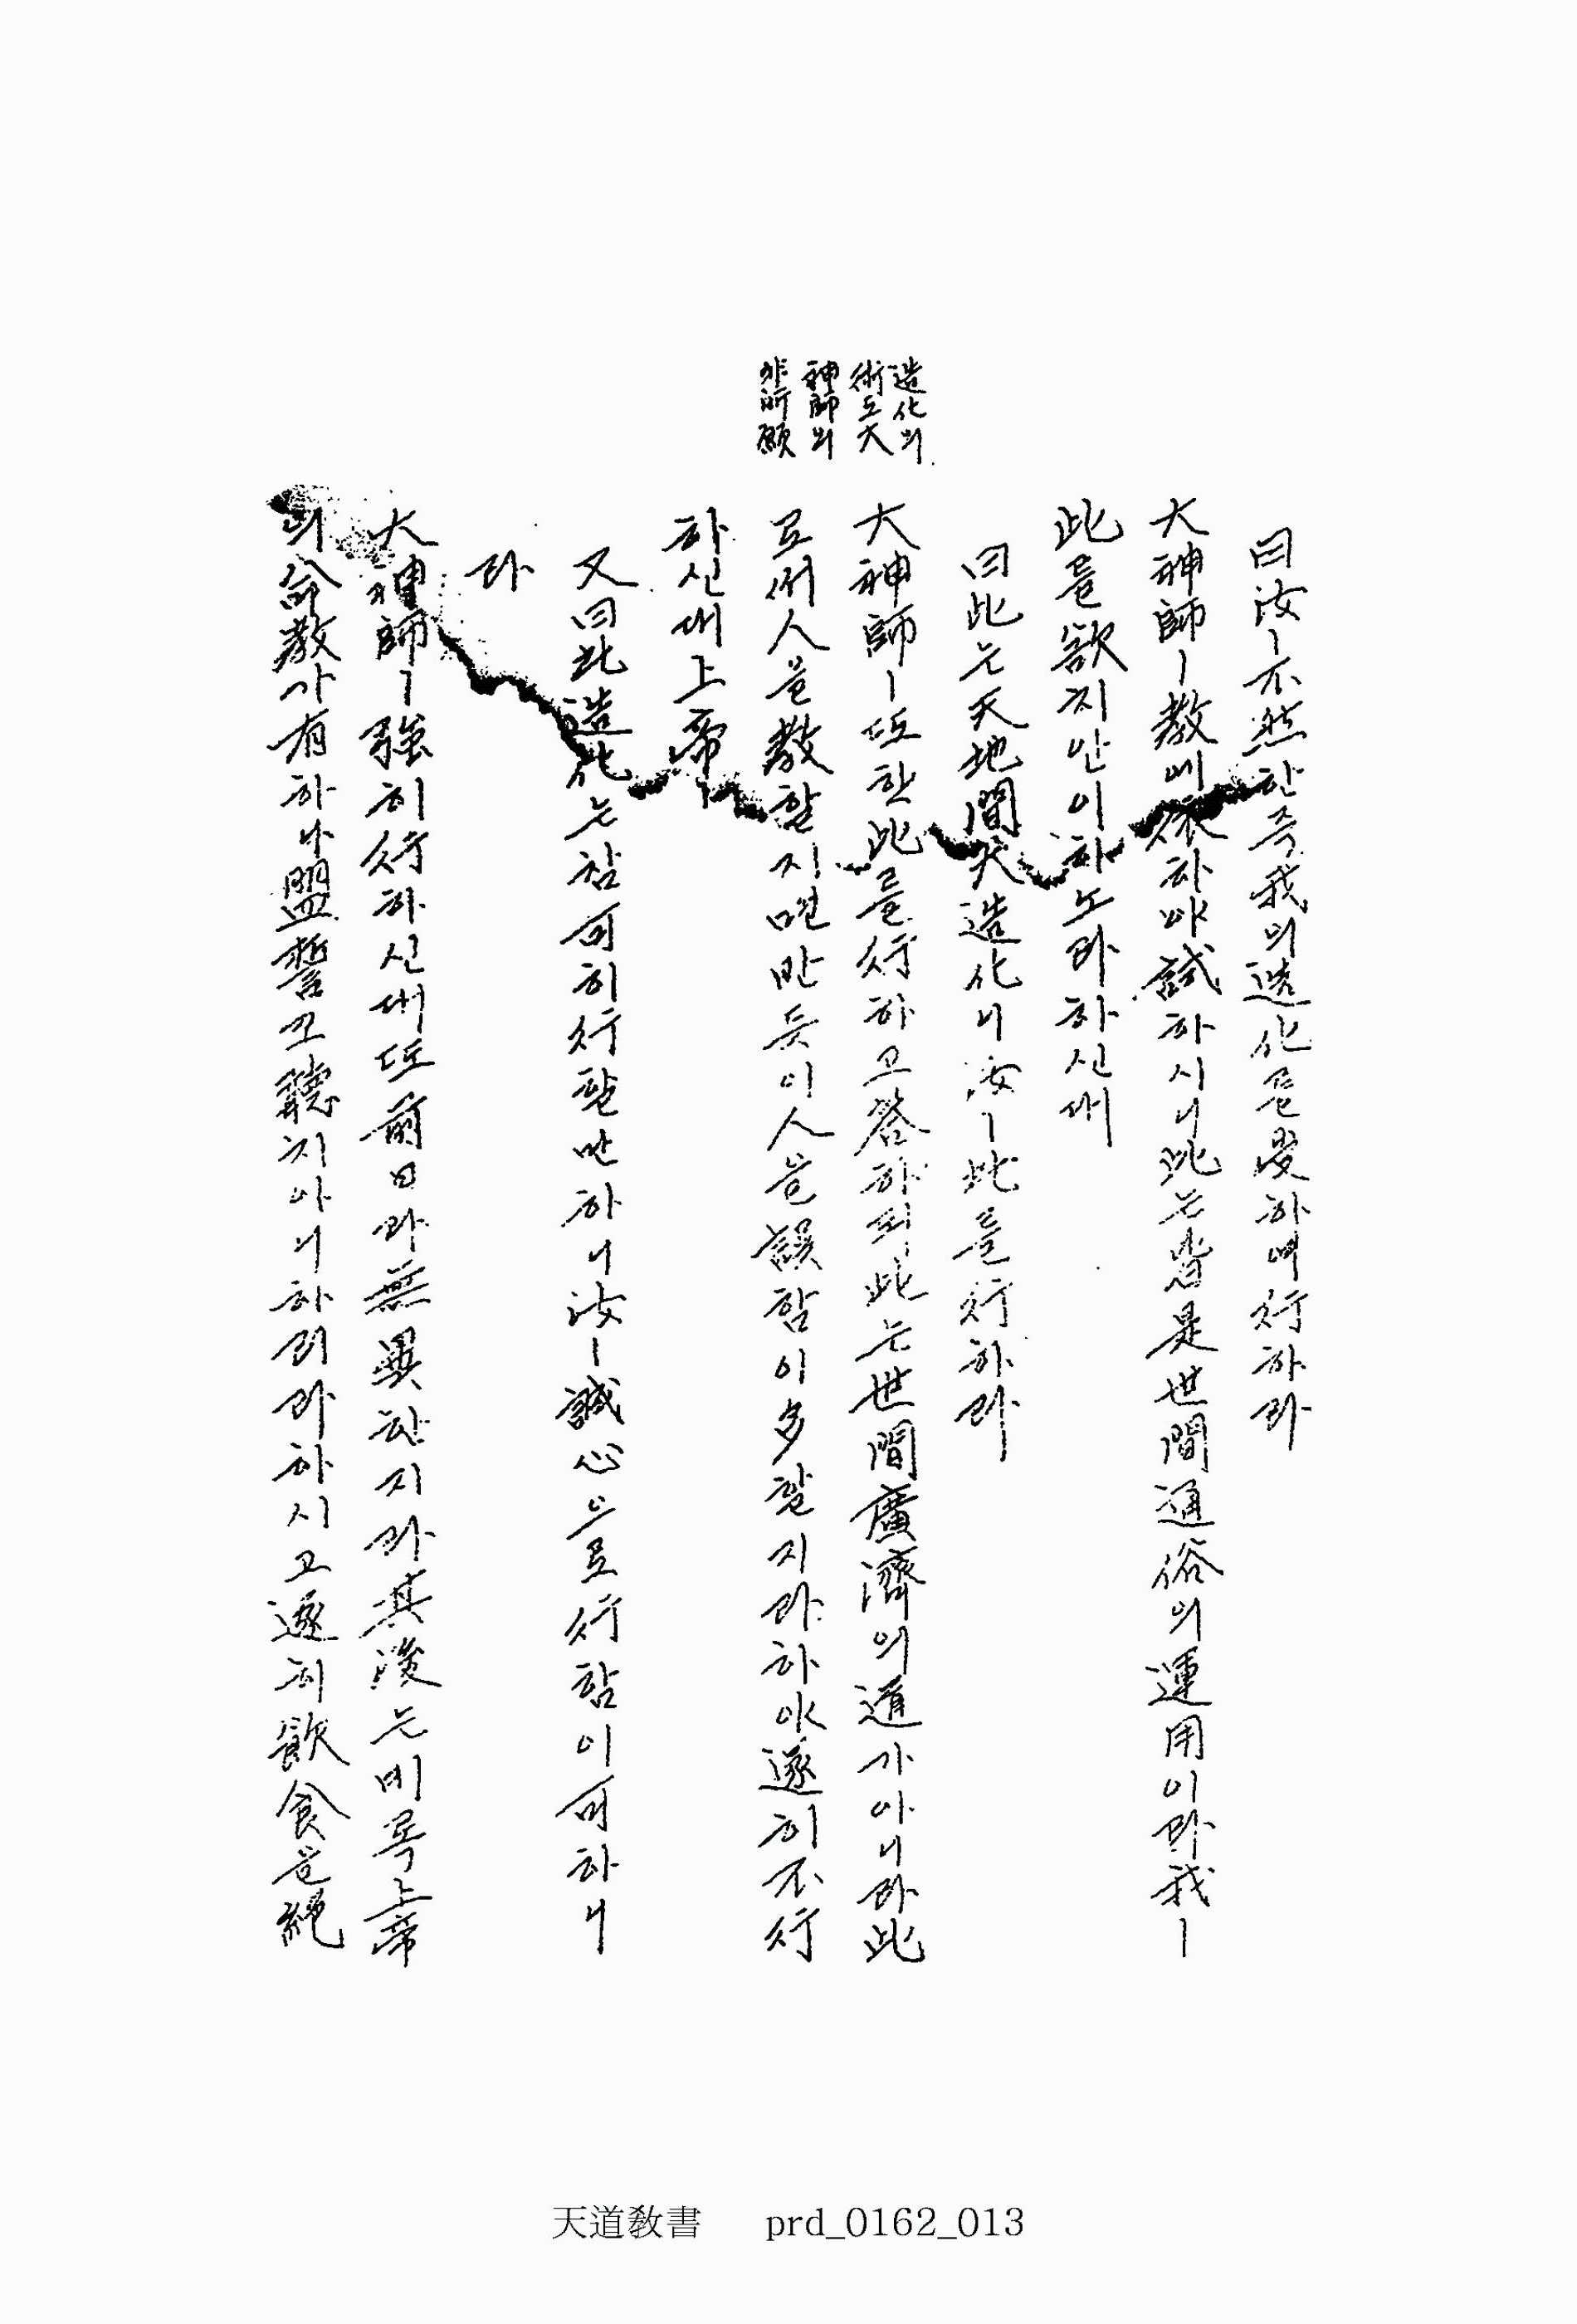 造化의
術도大
神師의
非所願
曰汝ㅣ不然한즉我의造化를受하여行하라
大神師ㅣ敎에依하야試하시니此는皆是世間通俗의運用이라我ㅣ
此를欲지안이하노라하신대
曰此는天地間大造化니汝ㅣ此를行하라
大神師ㅣ또한此를行하고答하되此는世間廣濟의道가아니라此
로써人을敎할지면반듯이人을誤함이多할지라하야遂히不行
하신대上帝
又曰此造化는참可히行할만하니汝ㅣ誠心으로行함이可하니
라
大神師ㅣ强히行하신대또前日과無異한지라其後는비록上帝
의命敎가有하나盟誓코聽치아니하리라하시고遂히飮食을絶
天道敎書 prd_0162_013